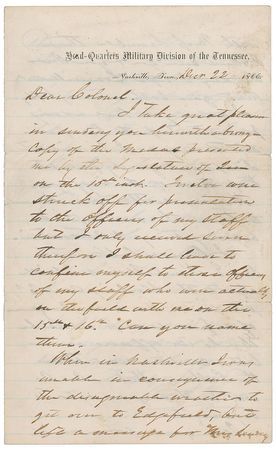 Head-Quarters Military Division of the Tennessee.
Nashville, Tenn., Decr 22 1866
Dear Colonel,
I take great pleasure
in sending you herewith a bronze
copy of the medal presented
me by the Legislature of Ten
on the 15th inst. Twelve were
struck off for presentation
to the officers of my staff
but I only received seven
therefore I shall have to
confine myself to those officers
of my staff who were actually
in the field with me on the
15th & 16th. Can you name
them.
When in Nashville I was
unable in consequence of
the disagreeable weather to
get over to Edgefield, but
left a message for